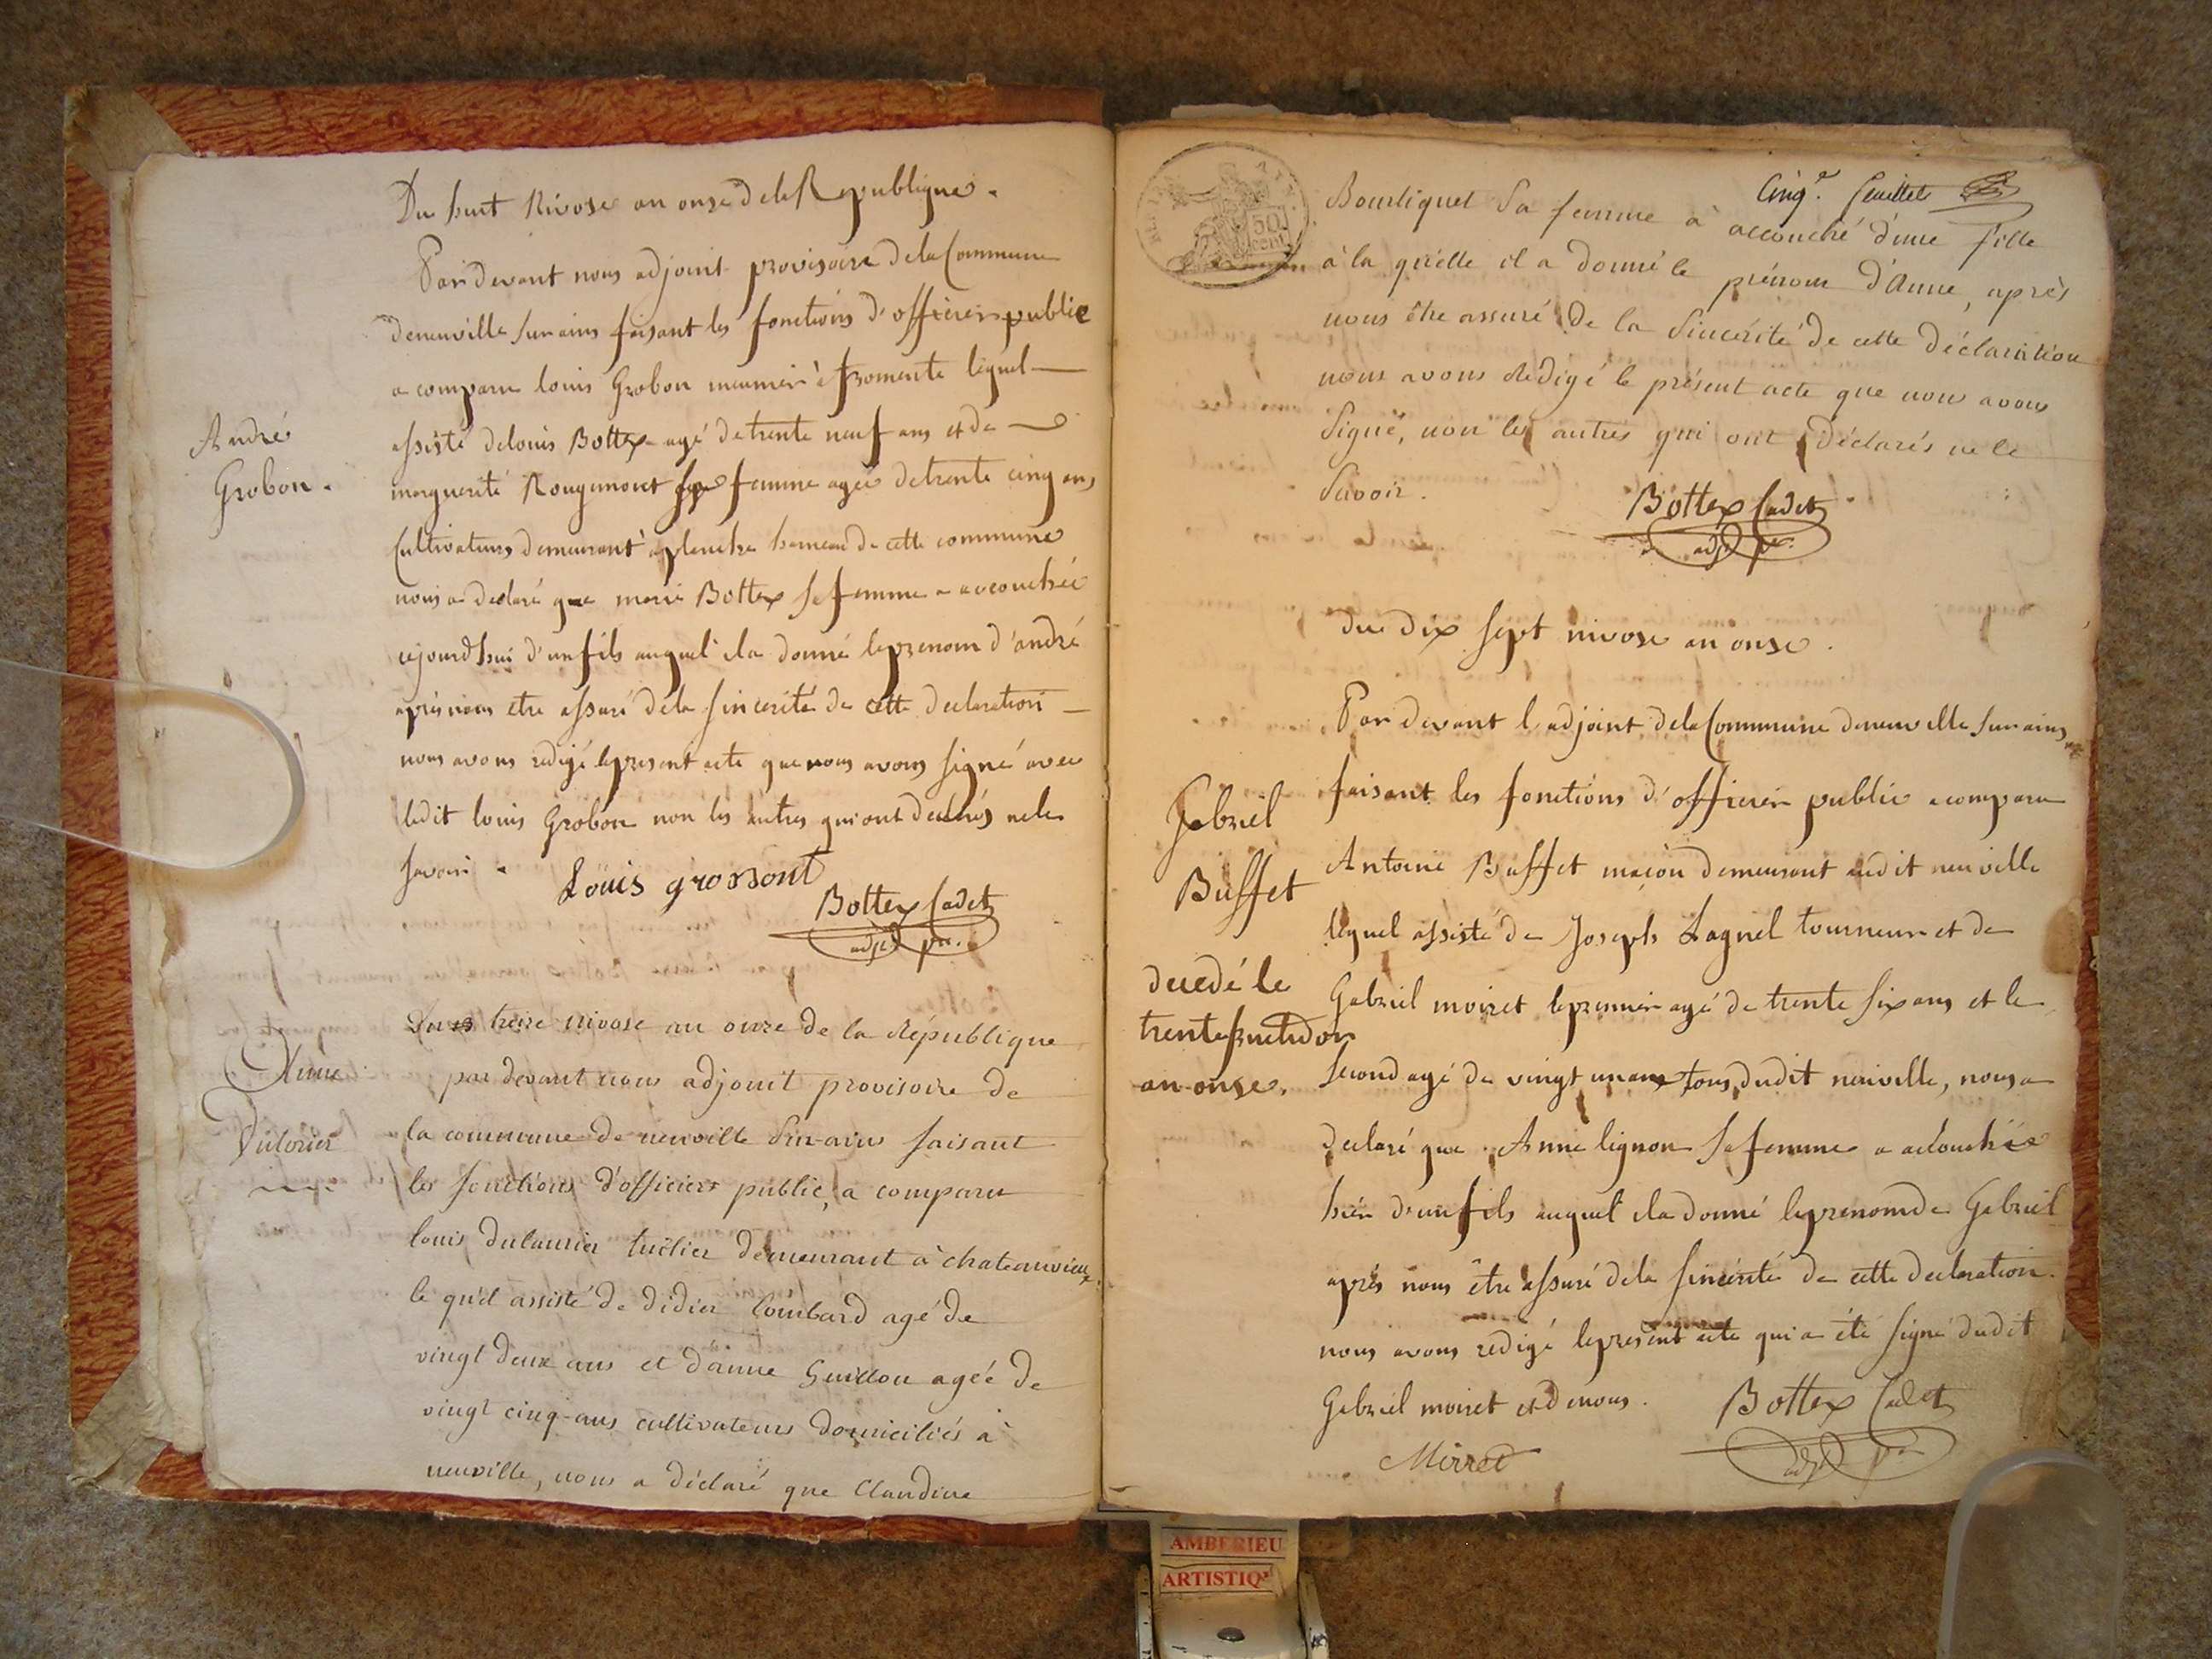 Du huit Nivose an onze de la Republique.
Par devant nous adjoint provisoire de la Commune
de neuville sur ains faisant les fonctions d'officier public
a comparu louis Grobon meunier à fromente lequel
André
assisté de louis Bottex agé de trente neuf ans et de
Grobon.
marguerite Rougemont femme agée de trente cinq ans
Cultivateurs demeurant a planche hameau de cette commune
nous a declaré que marie Bottex sa femme a accouchée
cejourdhui d'un fils auquel il a donné le prenom d'andré
après nous etre assuré de la sincerité de cette declaration
nous avons redigé le present acte que nous avons signé avec
ledit louis Grobon non les autres qui ont declarés ne le
savoir.
Louis grobont
Bottex Cadet
adjt pre.
Du treize nivose an onze de la République
Anne
par devant nous adjoint provisoire de
Dulorier
la commune de neuville sur-ains faisant
les fonctions d'officier public, a comparu
louis dulaurier tuilier demeurant à chateauvieux
le quel assisté de didier lombard agé de
vingt deux ans et d'anne Guillon agée de
vingt cinq-ans cultivateurs domiciliés à
neuville, nous a déclaré que Claudine
50
cent
Cinq.e feuillet
Bourliquet sa femme a accouché d'une fille
à la quelle il a donné le prénom d'Anne, après
nous être assuré de la sincérité de cette déclaration
nous avons rédigé le présent acte que nous avons
signé, non les autres qui ont déclarés ne le
savoir.
Bottex Cadet
adjt pre.
du dix sept nivose an onze.
Par devant l'adjoint de la Commune de neuville sur ains
faisant les fonctions d'officier public a comparu
Gabriel
Buffet
Antoine Buffet maçon demeurant audit neuville
lequel assisté de Joseph Lagnel tourneur et de
decedé le
trente fructidor
an onze.
Gabriel moiret le premier agé de trente six ans et le
second agé de vingt un ans tous dudit neuville, nous a
declaré que Anne lignon sa femme a accouchée
hier d'un fils auquel il a donné le prenom de Gabriel
après nous être assuré de la sincerité de cette declaration
nous avons redigé le present acte qui a été signé dudit
Gabriel moiret et de nous.
Bottex Cadet
adjt pre
Mirret
AMBERIEU
ARTISTIQ